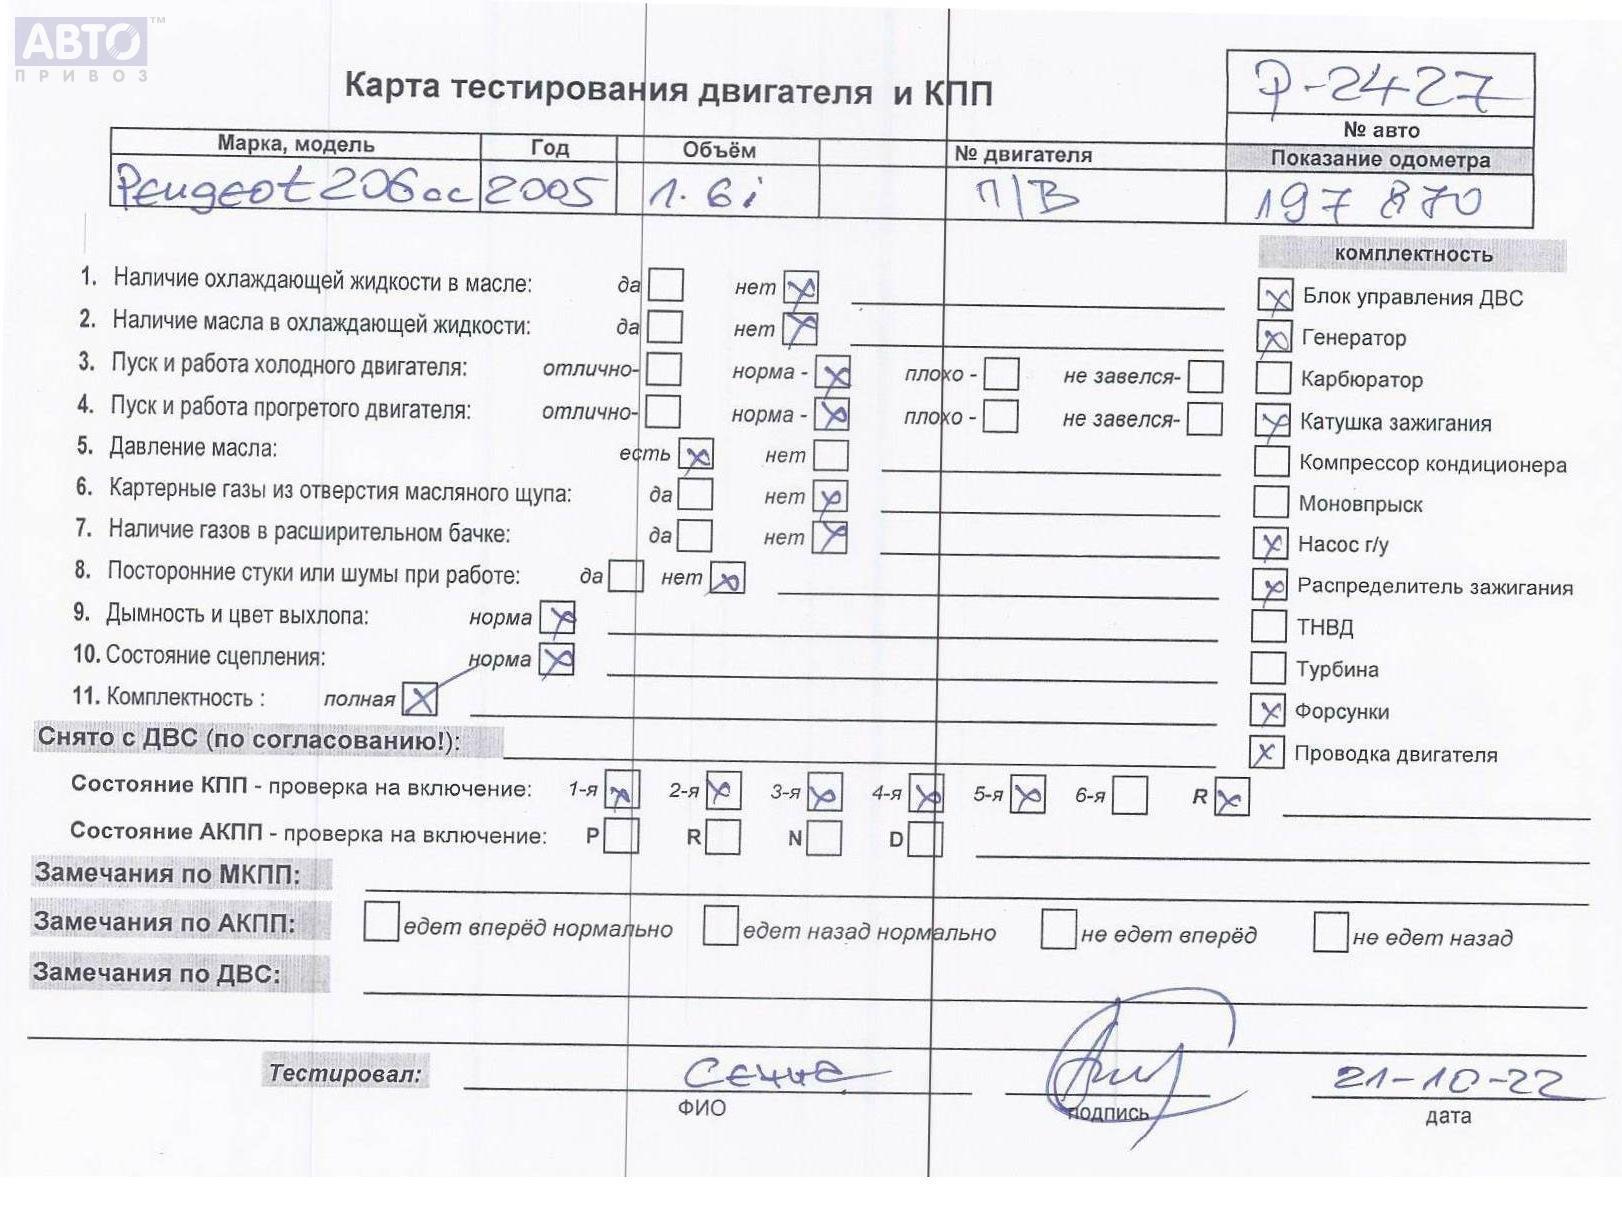 АВТО™
ПРИВОЗ
Карта тестирования двигателя и КПП
P-2427
№ авто
Марка, модель Год Объём № двигателя Показание одометра
Peugeot 206cc 2005 1.6i П/В 197 870
комплектность
1. Наличие охлаждающей жидкости в масле: да нет
Блок управления ДВС
2. Наличие масла в охлаждающей жидкости: да нет
Генератор
3. Пуск и работа холодного двигателя: отлично- норма - плохо - не завелся-
Карбюратор
4. Пуск и работа прогретого двигателя: отлично- норма - плохо - не завелся-
Катушка зажигания
5. Давление масла: есть нет
Компрессор кондиционера
6. Картерные газы из отверстия масляного щупа: да нет
Моновпрыск
7. Наличие газов в расширительном бачке: да нет
Насос г/у
8. Посторонние стуки или шумы при работе: да нет
Распределитель зажигания
9. Дымность и цвет выхлопа: норма
ТНВД
10. Состояние сцепления: норма
Турбина
11. Комплектность : полная
Форсунки
Снято с ДВС (по согласованию!):
Проводка двигателя
Состояние КПП - проверка на включение: 1-я 2-я 3-я 4-я 5-я 6-я R
Состояние АКПП - проверка на включение: P R N D
Замечания по МКПП:
Замечания по АКПП: едет вперёд нормально едет назад нормально не едет вперёд не едет назад
Замечания по ДВС:
Тестировал: 21-10-22
ФИО подпись дата